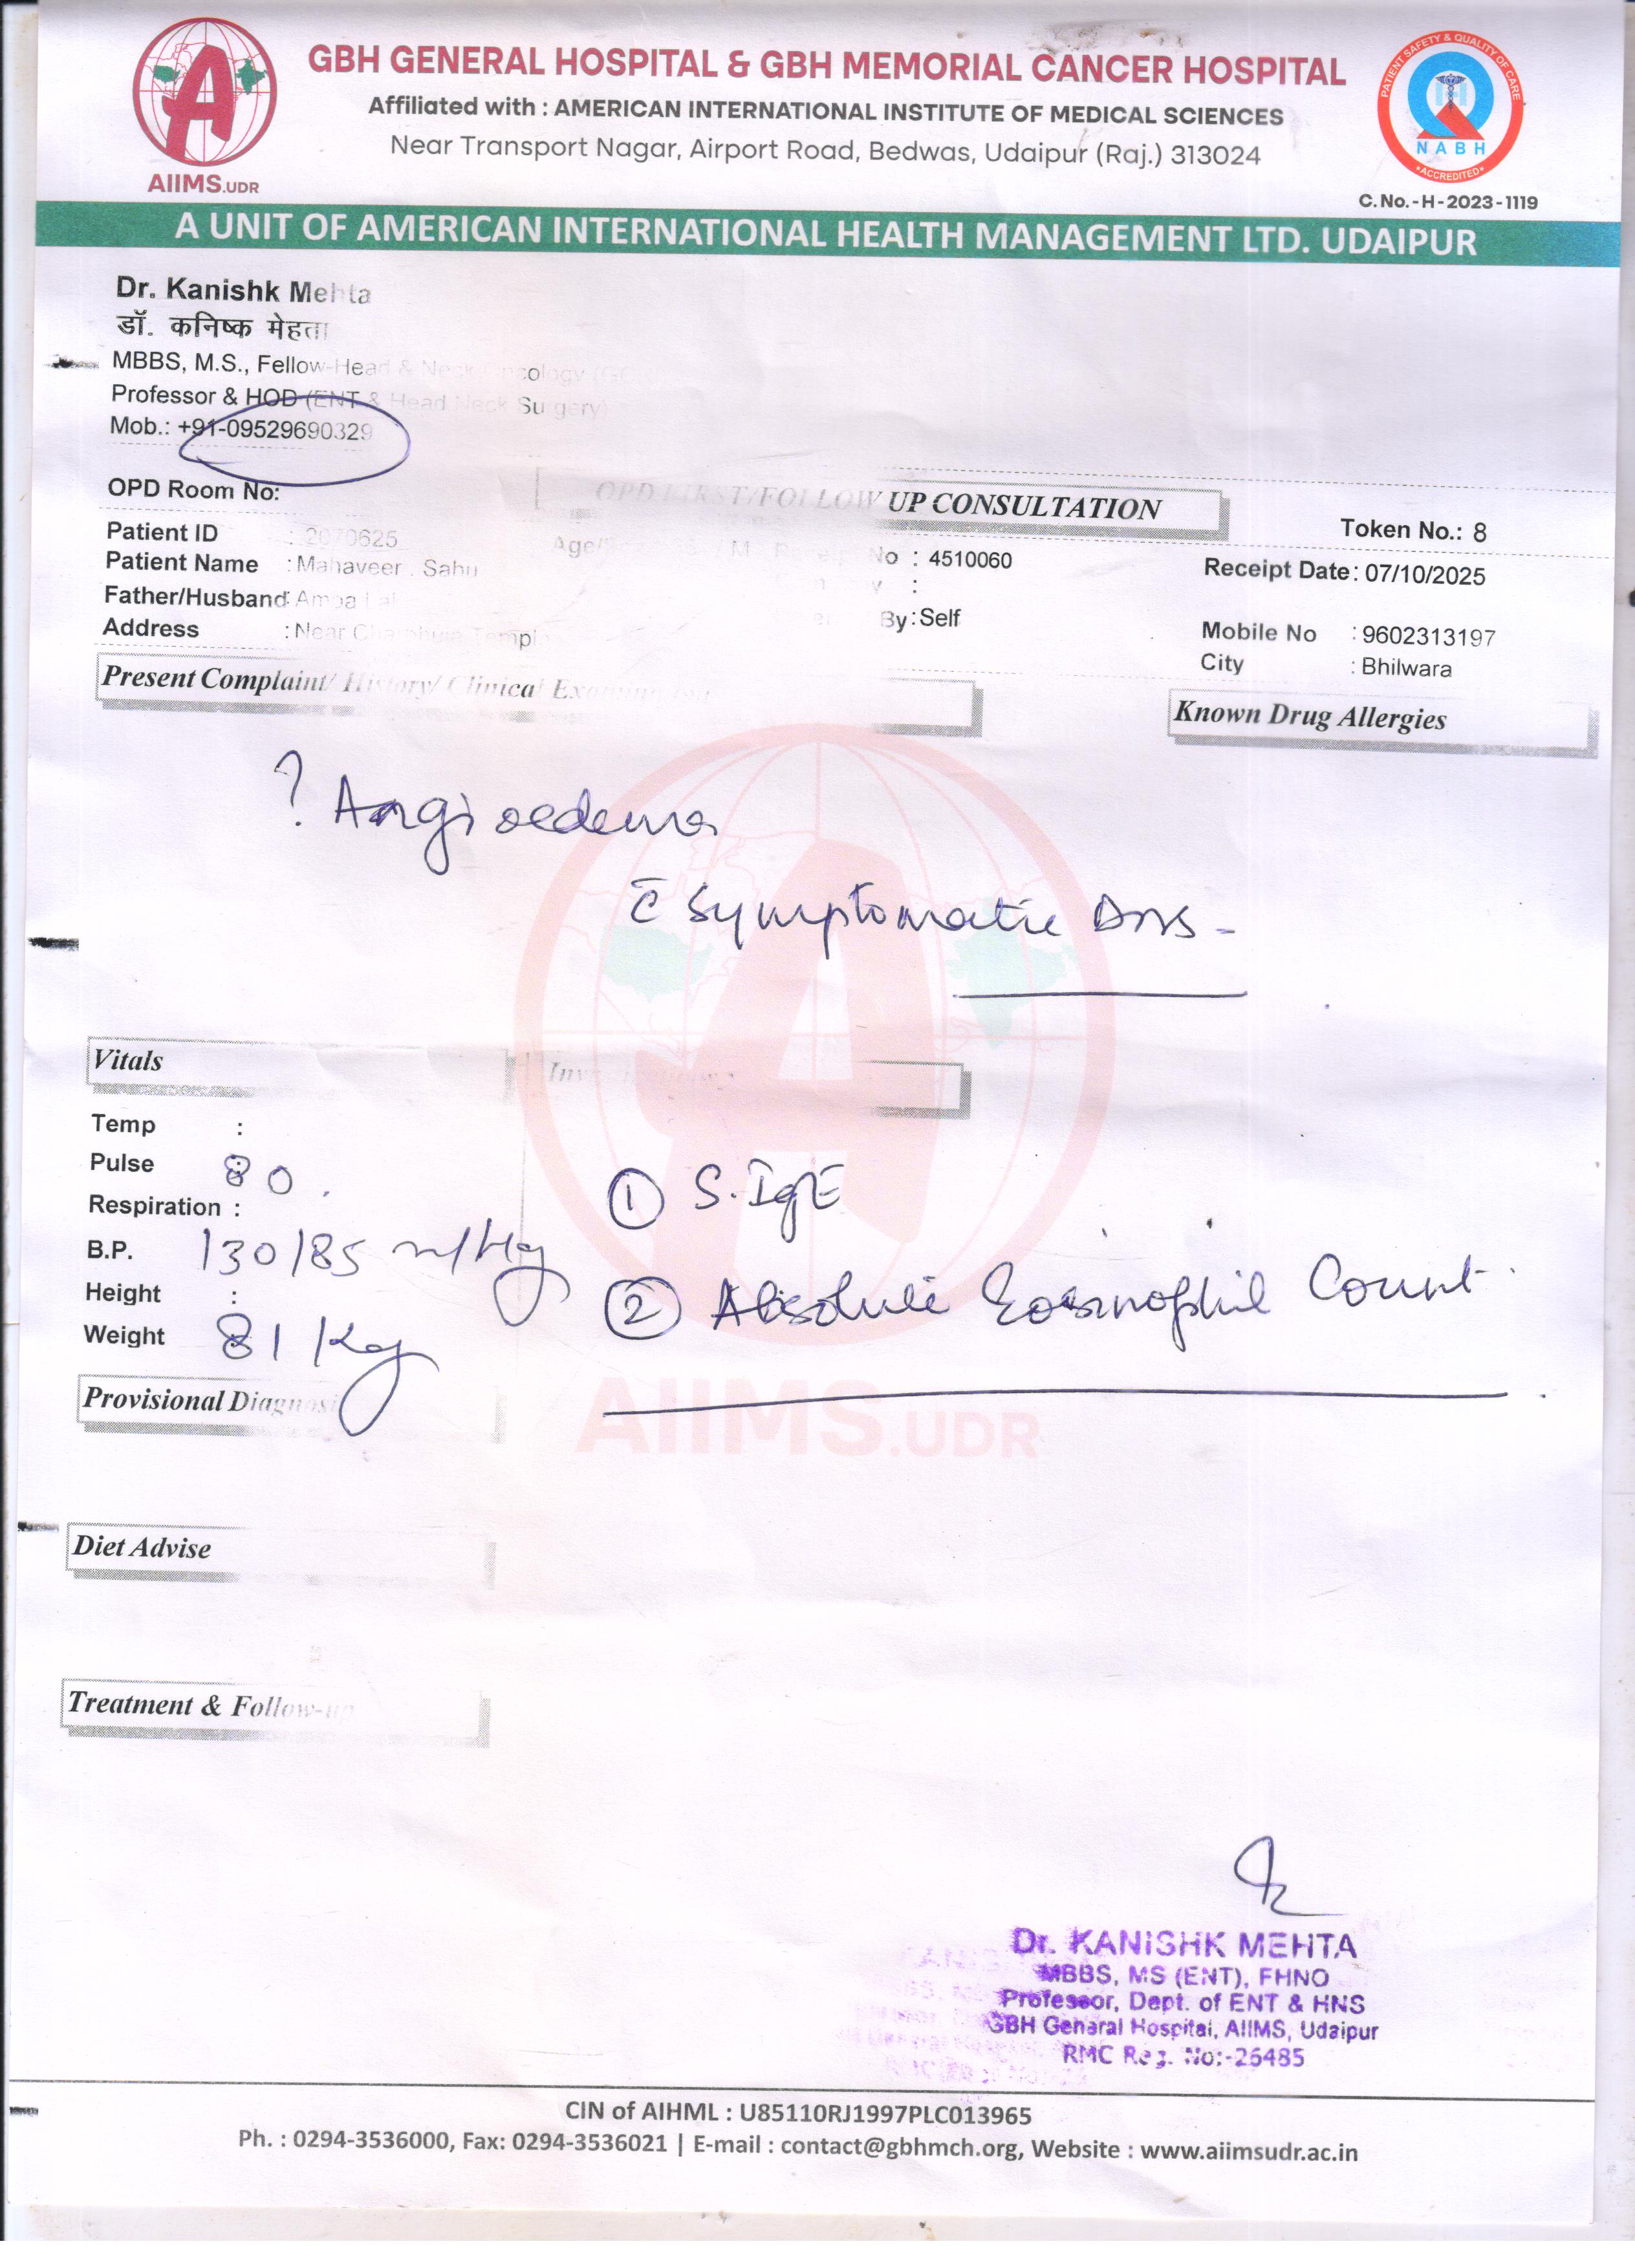 GBH GENERAL HOSPITAL & GBH MEMORIAL CANCER HOSPITAL
Affiliated with : AMERICAN INTERNATIONAL INSTITUTE OF MEDICAL SCIENCES
Near Transport Nagar, Airport Road, Bedwas, Udaipur (Raj.) 313024
AIIMS.UDR
PATIENT SAFETY & QUALITY OF CARE
NABH
ACCREDITED
C. No. - H - 2023 - 1119
A UNIT OF AMERICAN INTERNATIONAL HEALTH MANAGEMENT LTD. UDAIPUR
Dr. Kanishk Mehta
डॉ. कनिष्क मेहता
MBBS, M.S., Fellow-Head & Neck Oncology
Professor & HOD (ENT & Head Neck Surgery)
Mob.: +91-09529690329
OPD Room No:
OPD FIRST/FOLLOW UP CONSULTATION
Token No.: 8
Patient ID : 2070625 Age/ M No : 4510060 Receipt Date: 07/10/2025
Patient Name : Mahaveer . Sahu
Father/Husband: Amba Lal By: Self Mobile No : 9602313197
Address : Near Temple City : Bhilwara
Present Complaint/ History/ Clinical Examination
Known Drug Allergies
? Angioedema
c̄ Symptomatic DNS -
Vitals
Temp :
Pulse : 80
Respiration :
B.P. 130/85 m/Hg
Height :
Weight : 81 Kg
① S. IgE
② Absolute Eosinophil Count
Provisional Diagnosis
AIIMS.UDR
Diet Advise
Treatment & Follow-up
Dr. KANISHK MEHTA
MBBS, MS (ENT), FHNO
Professor, Dept. of ENT & HNS
GBH General Hospital, AIIMS, Udaipur
RMC Reg. No:-26485
CIN of AIHML : U85110RJ1997PLC013965
Ph. : 0294-3536000, Fax: 0294-3536021 | E-mail : contact@gbhmch.org, Website : www.aiimsudr.ac.in